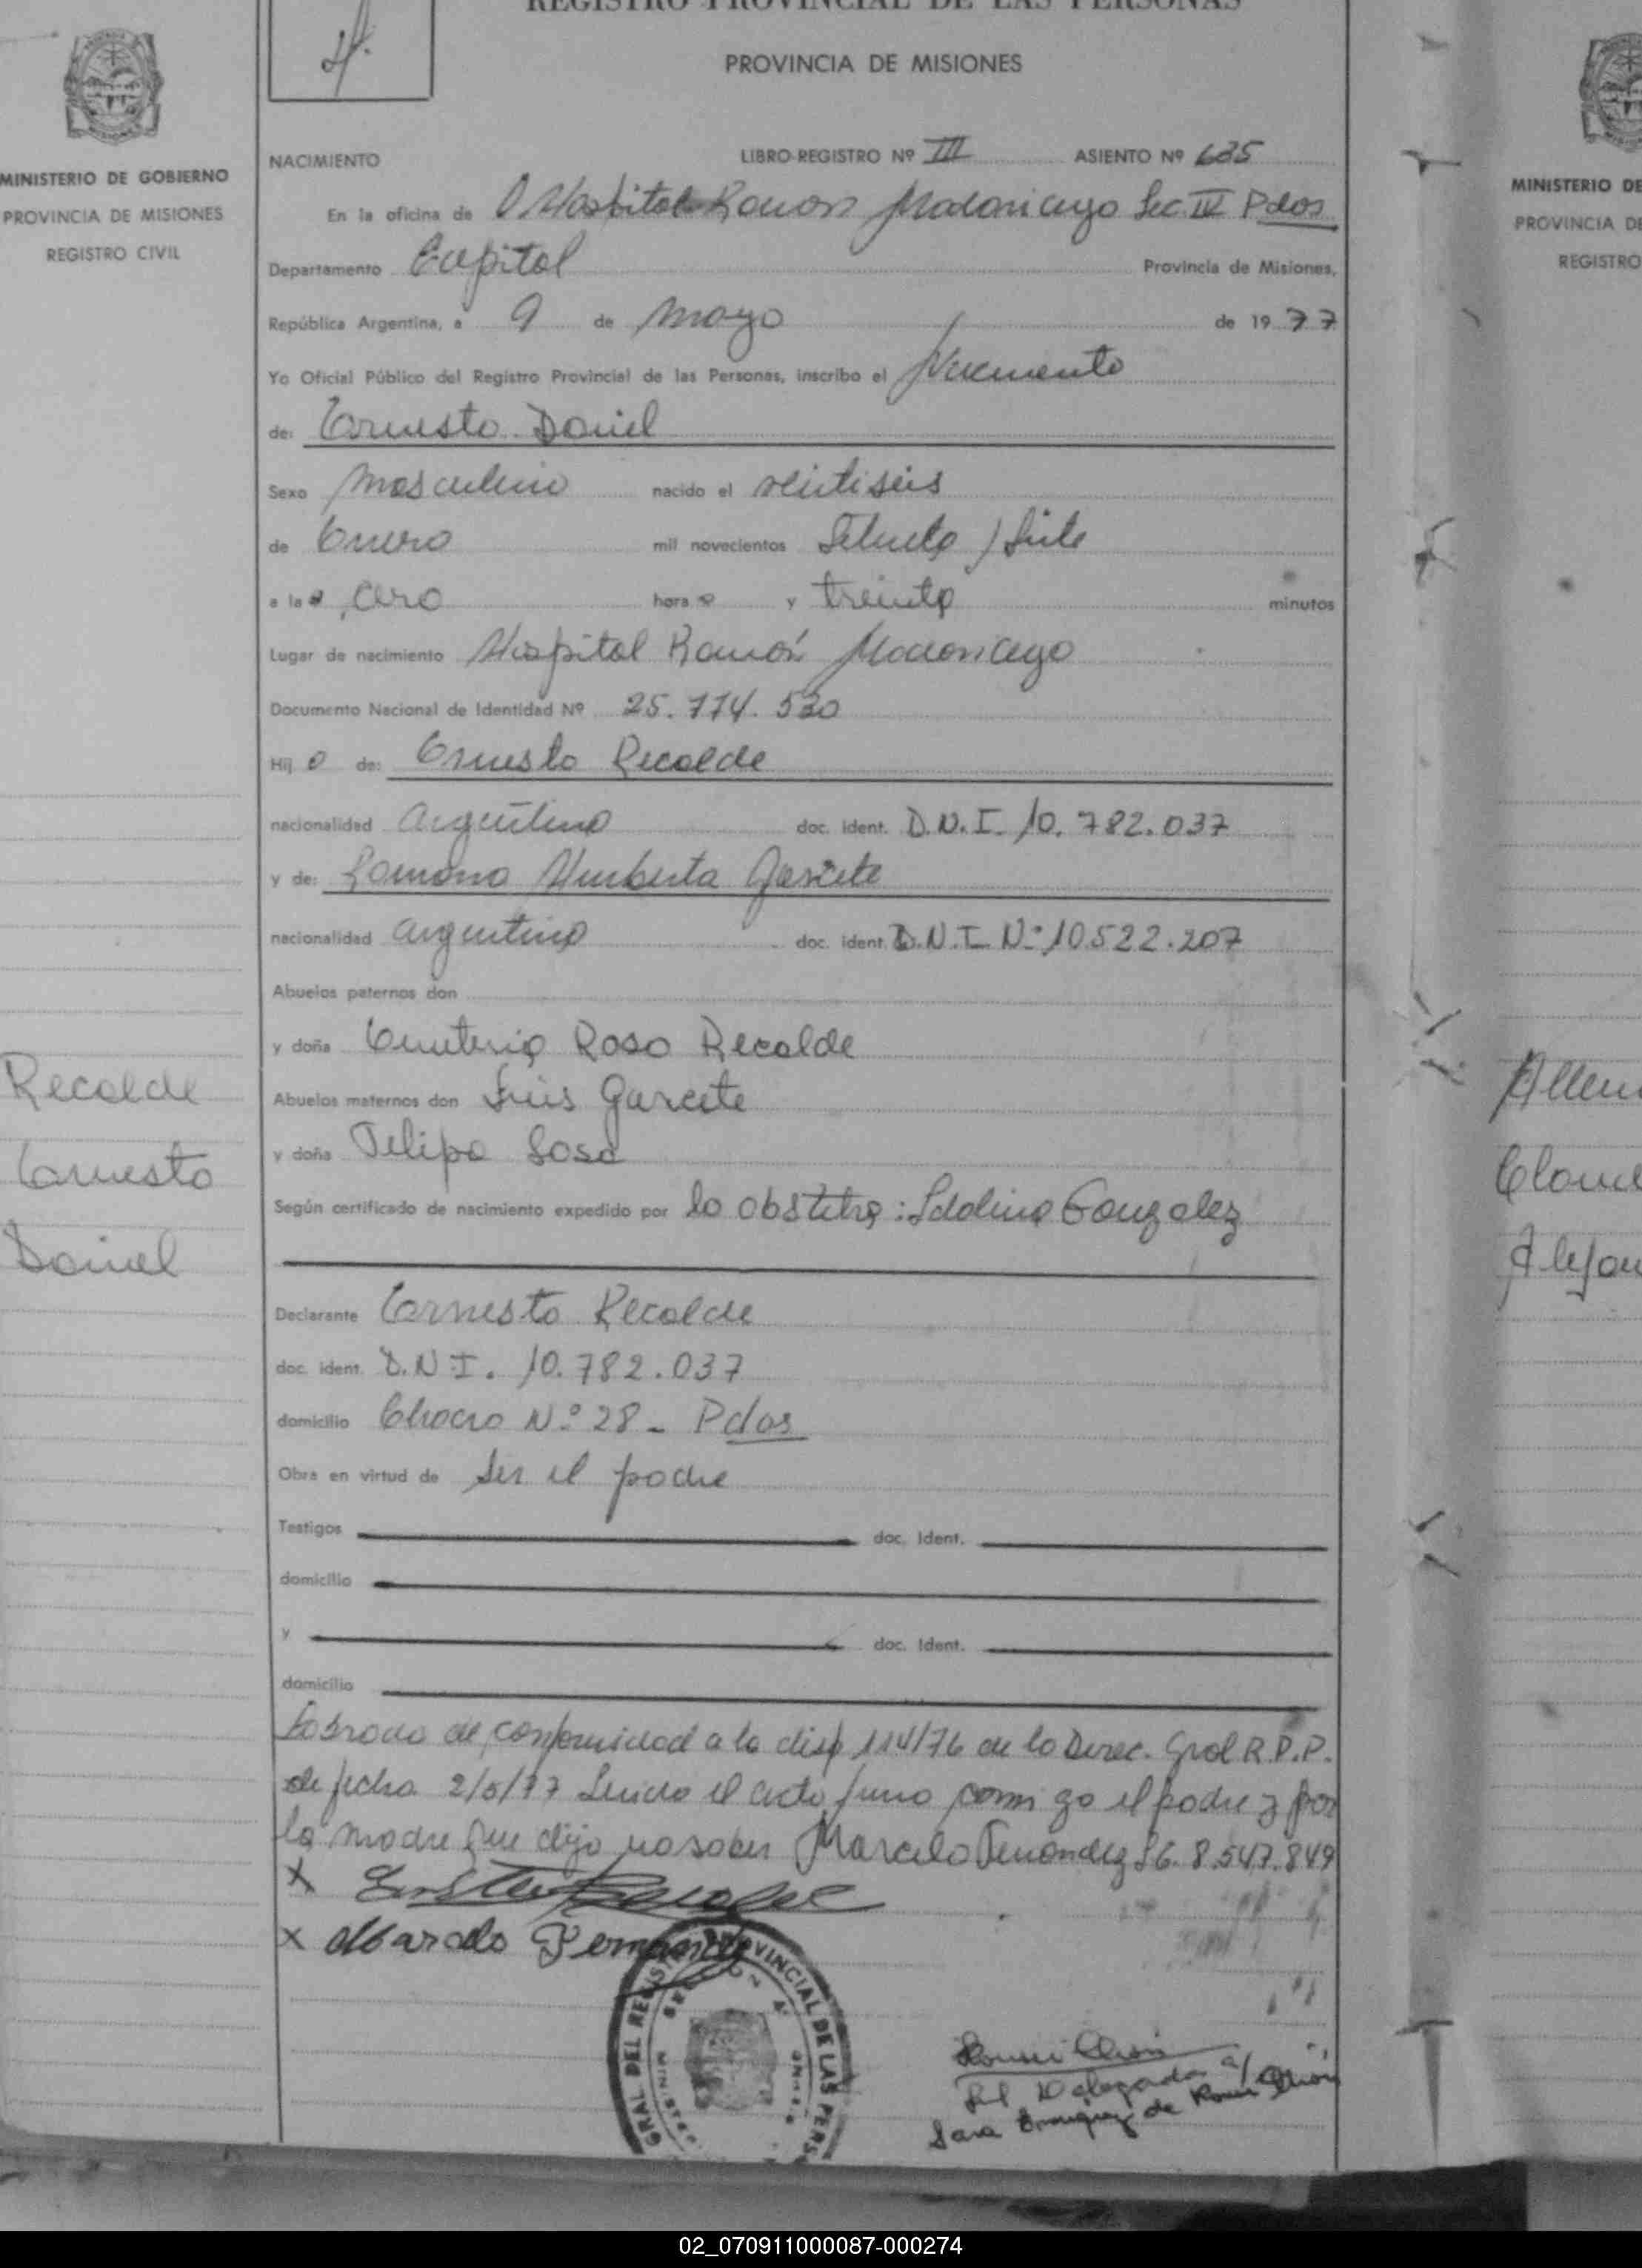 REGISTRO PROVINCIAL DE LAS PERSONAS
PROVINCIA DE MISIONES
MINISTERIO DE GOBIERNO
PROVINCIA DE MISIONES
REGISTRO CIVIL
NACIMIENTO LIBRO-REGISTRO Nº III ASIENTO Nº 635
En la oficina de Hospital Ramon Madariaga Sec. IV Pdas
Departamento Capital Provincia de Misiones,
República Argentina, a 9 de mayo de 1977
Yo Oficial Público del Registro Provincial de las Personas, inscribo el Nacimiento
de: Ernesto Daniel
Sexo masculino nacido el veintiseis
de Enero mil novecientos Setenta y Siete
a la cero hora y treinta minutos
Lugar de nacimiento Hospital Ramón Madariaga
Documento Nacional de Identidad Nº 25.774.530
Hijo de: Ernesto Recalde
nacionalidad argentina doc. ident. D.N.I. 10.782.037
y de: Ramona Humberta Garcete
nacionalidad argentina doc. ident. D.N.I. Nº 10522.207
Abuelos paternos don
y doña Emeteria Rosa Recalde
Abuelos maternos don Luis Garcete
y doña Felipa Sosa
Según certificado de nacimiento expedido por la obstetra: Idalina Gonzalez
Recalde
Ernesto
Daniel
Declarante Ernesto Recalde
doc. ident. D.N.I. 10.782.037
domicilio Chacra Nº 28 - Pdas
Obra en virtud de ser el padre
Testigos doc. Ident.
domicilio
y doc. Ident.
domicilio
Labrada de conformidad a la disp 114/76 de la Direc. Gral R.P.P.
de fecha 2/5/77 Leida el acta firma conmigo el padre y por
la madre que dijo no saber Marcelo Fernandez 8.547.849
X
X Marcelo Fernandez
GRAL DEL REGISTRO PROVINCIAL DE LAS PERS
Delegada a/
Sara Enriquez de
MINISTERIO DE
PROVINCIA DE
REGISTRO
02_070911000087-000274